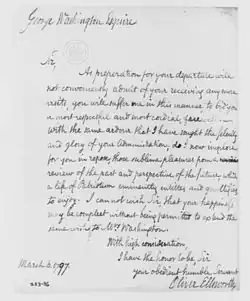 George Washington Esquire
Sir,
As preparation for your departure will
not conveniently admit of your receiving any more
visits, you will suffer me in this manner to bid you
a most respectful and most cordial farewell.
With the same ardour that I have sought the felicity
and glory of your Administration, do I now implore
for you in repose, those sublime pleasures from a
review of the past and perspective of the future, which
a life of Patriotism eminently entitles and qualifies
to enjoy. I cannot wish Sir that your happiness
may be compleat without being permitted to extend the
same wish to Mrs Washington.
With high consideration,
I have the honor to be, Sir
your obedient humble Servant
Oliver Ellsworth
March 97.